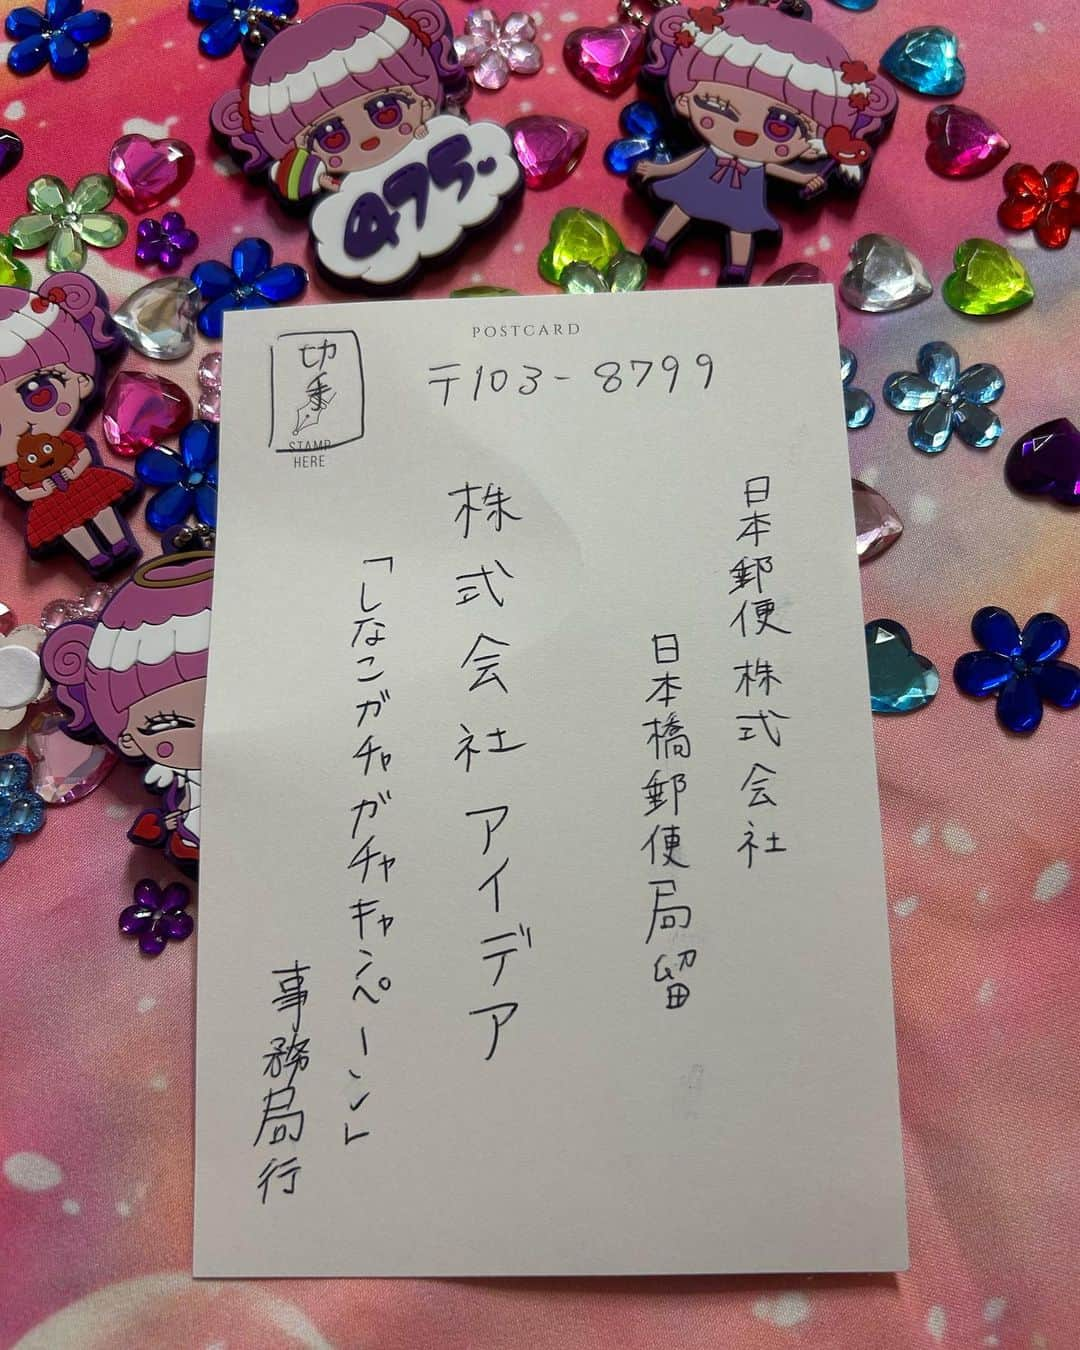 475
POSTCARD
切手
STAMP
HERE
〒103-8799
日本郵便株式会社
日本橋郵便局留
株式会社アイデア
「しなこガチャガチャキャンペーン」
事務局行